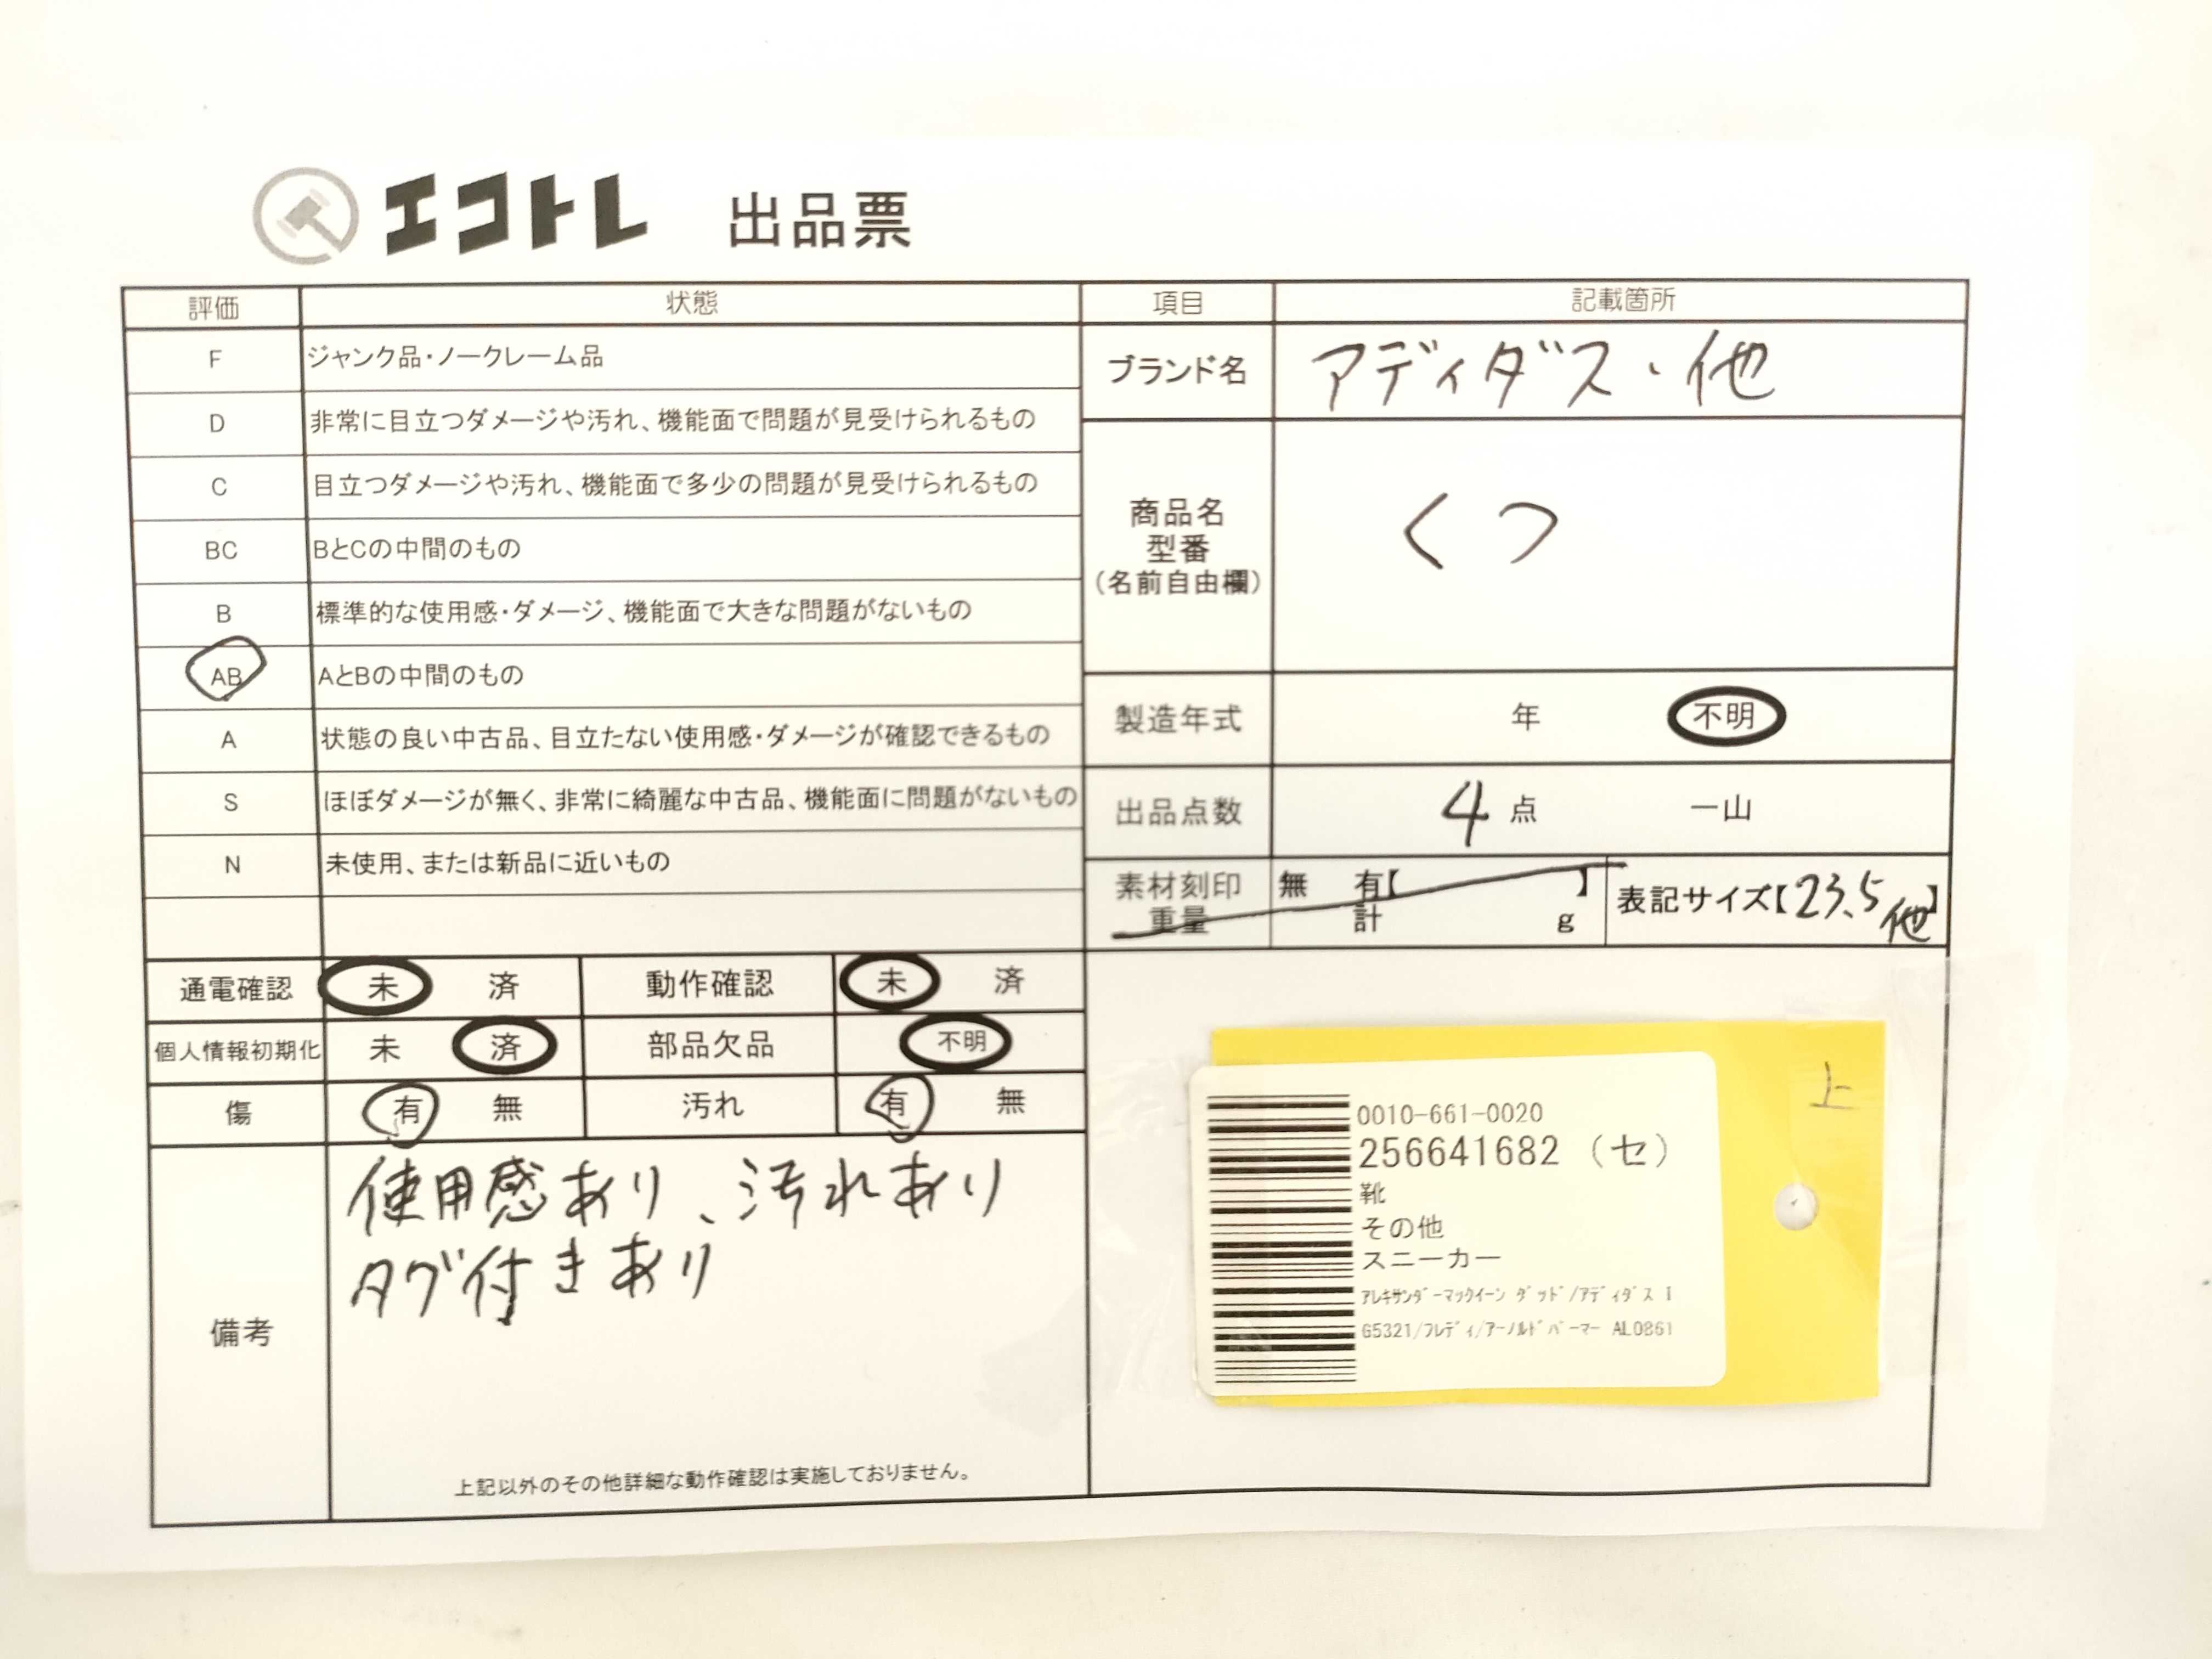 エコトレ 出品票
評価 状態 項目 記載箇所
F ジャンク品・ノークレーム品
D 非常に目立つダメージや汚れ、機能面で問題が見受けられるもの
C 目立つダメージや汚れ、機能面で多少の問題が見受けられるもの
BC BとCの中間のもの
B 標準的な使用感・ダメージ、機能面で大きな問題がないもの
AB AとBの中間のもの
A 状態の良い中古品、目立たない使用感・ダメージが確認できるもの
S ほぼダメージが無く、非常に綺麗な中古品、機能面に問題がないもの
N 未使用、または新品に近いもの
ブランド名 アディダス・他
商品名
型番
(名前自由欄)
くつ
製造年式 年 不明
出品点数 4点 一山
素材刻印 無 有【 】
重量 計 g
表記サイズ【23.5他】
通電確認 未 済 動作確認 未 済
個人情報初期化 未 済 部品欠品 不明
傷 有 無 汚れ 有 無
備考
使用感あり、汚れあり
タグ付きあり
上記以外のその他詳細な動作確認は実施しておりません。
上
0010-661-0020
256641682 (セ)
靴
その他
スニーカー
ｱﾚｷｻﾝﾀﾞｰﾏｯｸｲｰﾝ ﾀﾞｯﾄﾞ/ｱﾃﾞｨﾀﾞｽ I
G5321/ﾌﾚﾃﾞｨ/ｱｰﾉﾙﾄﾞﾊﾟｰﾏｰ AL0861